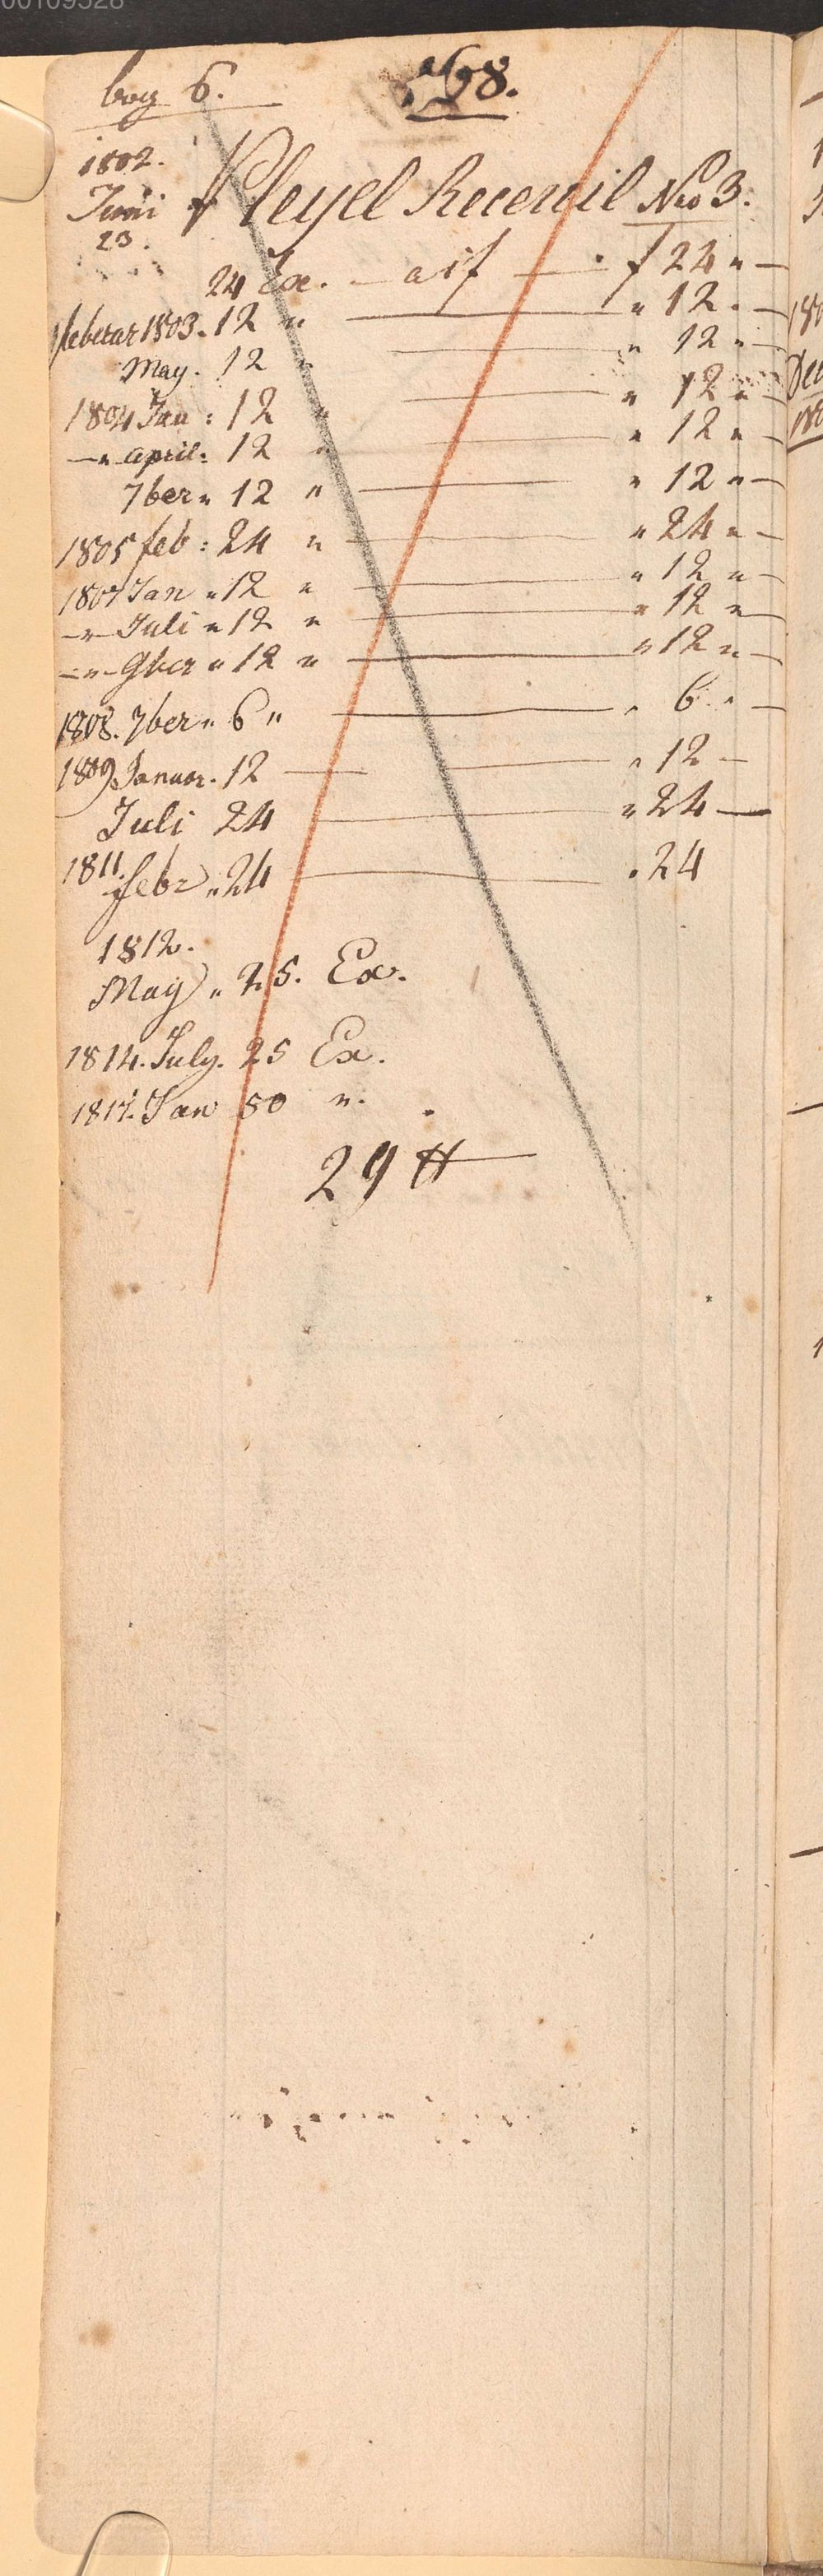 bog 6.
168.
1802.
Juni
23.
Pleyel Receuil Nro 3.
24 Ex. — a 1f — f 24 " —
febrar 1803. 12 " — " 12 . —
May. 12 " — " 12 " —
1804 Jan : 12 " — " 12 " —
—"— april : 12 " — " 12 " —
7ber " 12 " — " 12 " —
1805 feb : 24 " — " 24 " —
1807 Jan " 12 " — " 12 " —
—"— Juli " 12 " — " 12 " —
—"— 9ber " 12 " — " 12 " —
1808. 7ber " 6 " — " 6 " —
1809. Januar. 12 — " 12 —
Juli 24 — " 24 —
1811.
febr " 24 — " 24
1812.
May " 25. Ex.
1814. July. 25 Ex.
1817. Jan 50 ".
29 tt